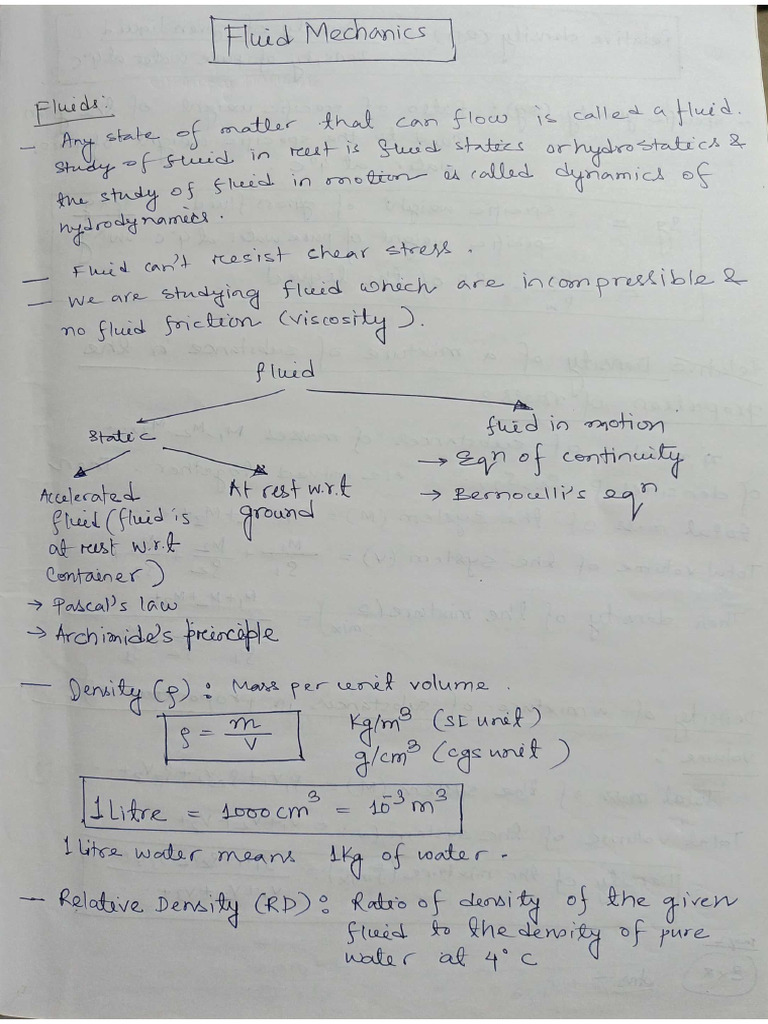 Fluid Mechanics
Fluids:
- Any state of matter that can flow is called a fluid.
Study of fluid in rest is fluid statics or hydrostatics &
the study of fluid in motion is called dynamics of
hydrodynamics.
- Fluid can't resist shear stress.
- We are studying fluid which are incompressible &
no fluid friction (viscosity).
fluid
static
fluid in motion
→ Eqn of continuity
→ Bernoculli's eqn
Accelerated
fluid (fluid is
at rest w.r.t
container)
At rest w.r.t
ground
→ Pascal's law
→ Archimide's principle
- Density (ρ) : Mass per unit volume.
ρ = m/V
Kg/m³ (SI unit)
g/cm³ (cgs unit)
1 Litre = 1000 cm³ = 10⁻³ m³
1 litre water means 1Kg of water.
- Relative Density (RD) : Ratio of density of the given
fluid to the density of pure
water at 4° C